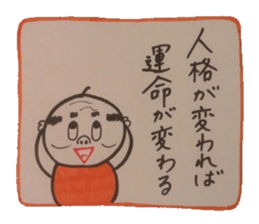 人格が変われば
運命が変わる